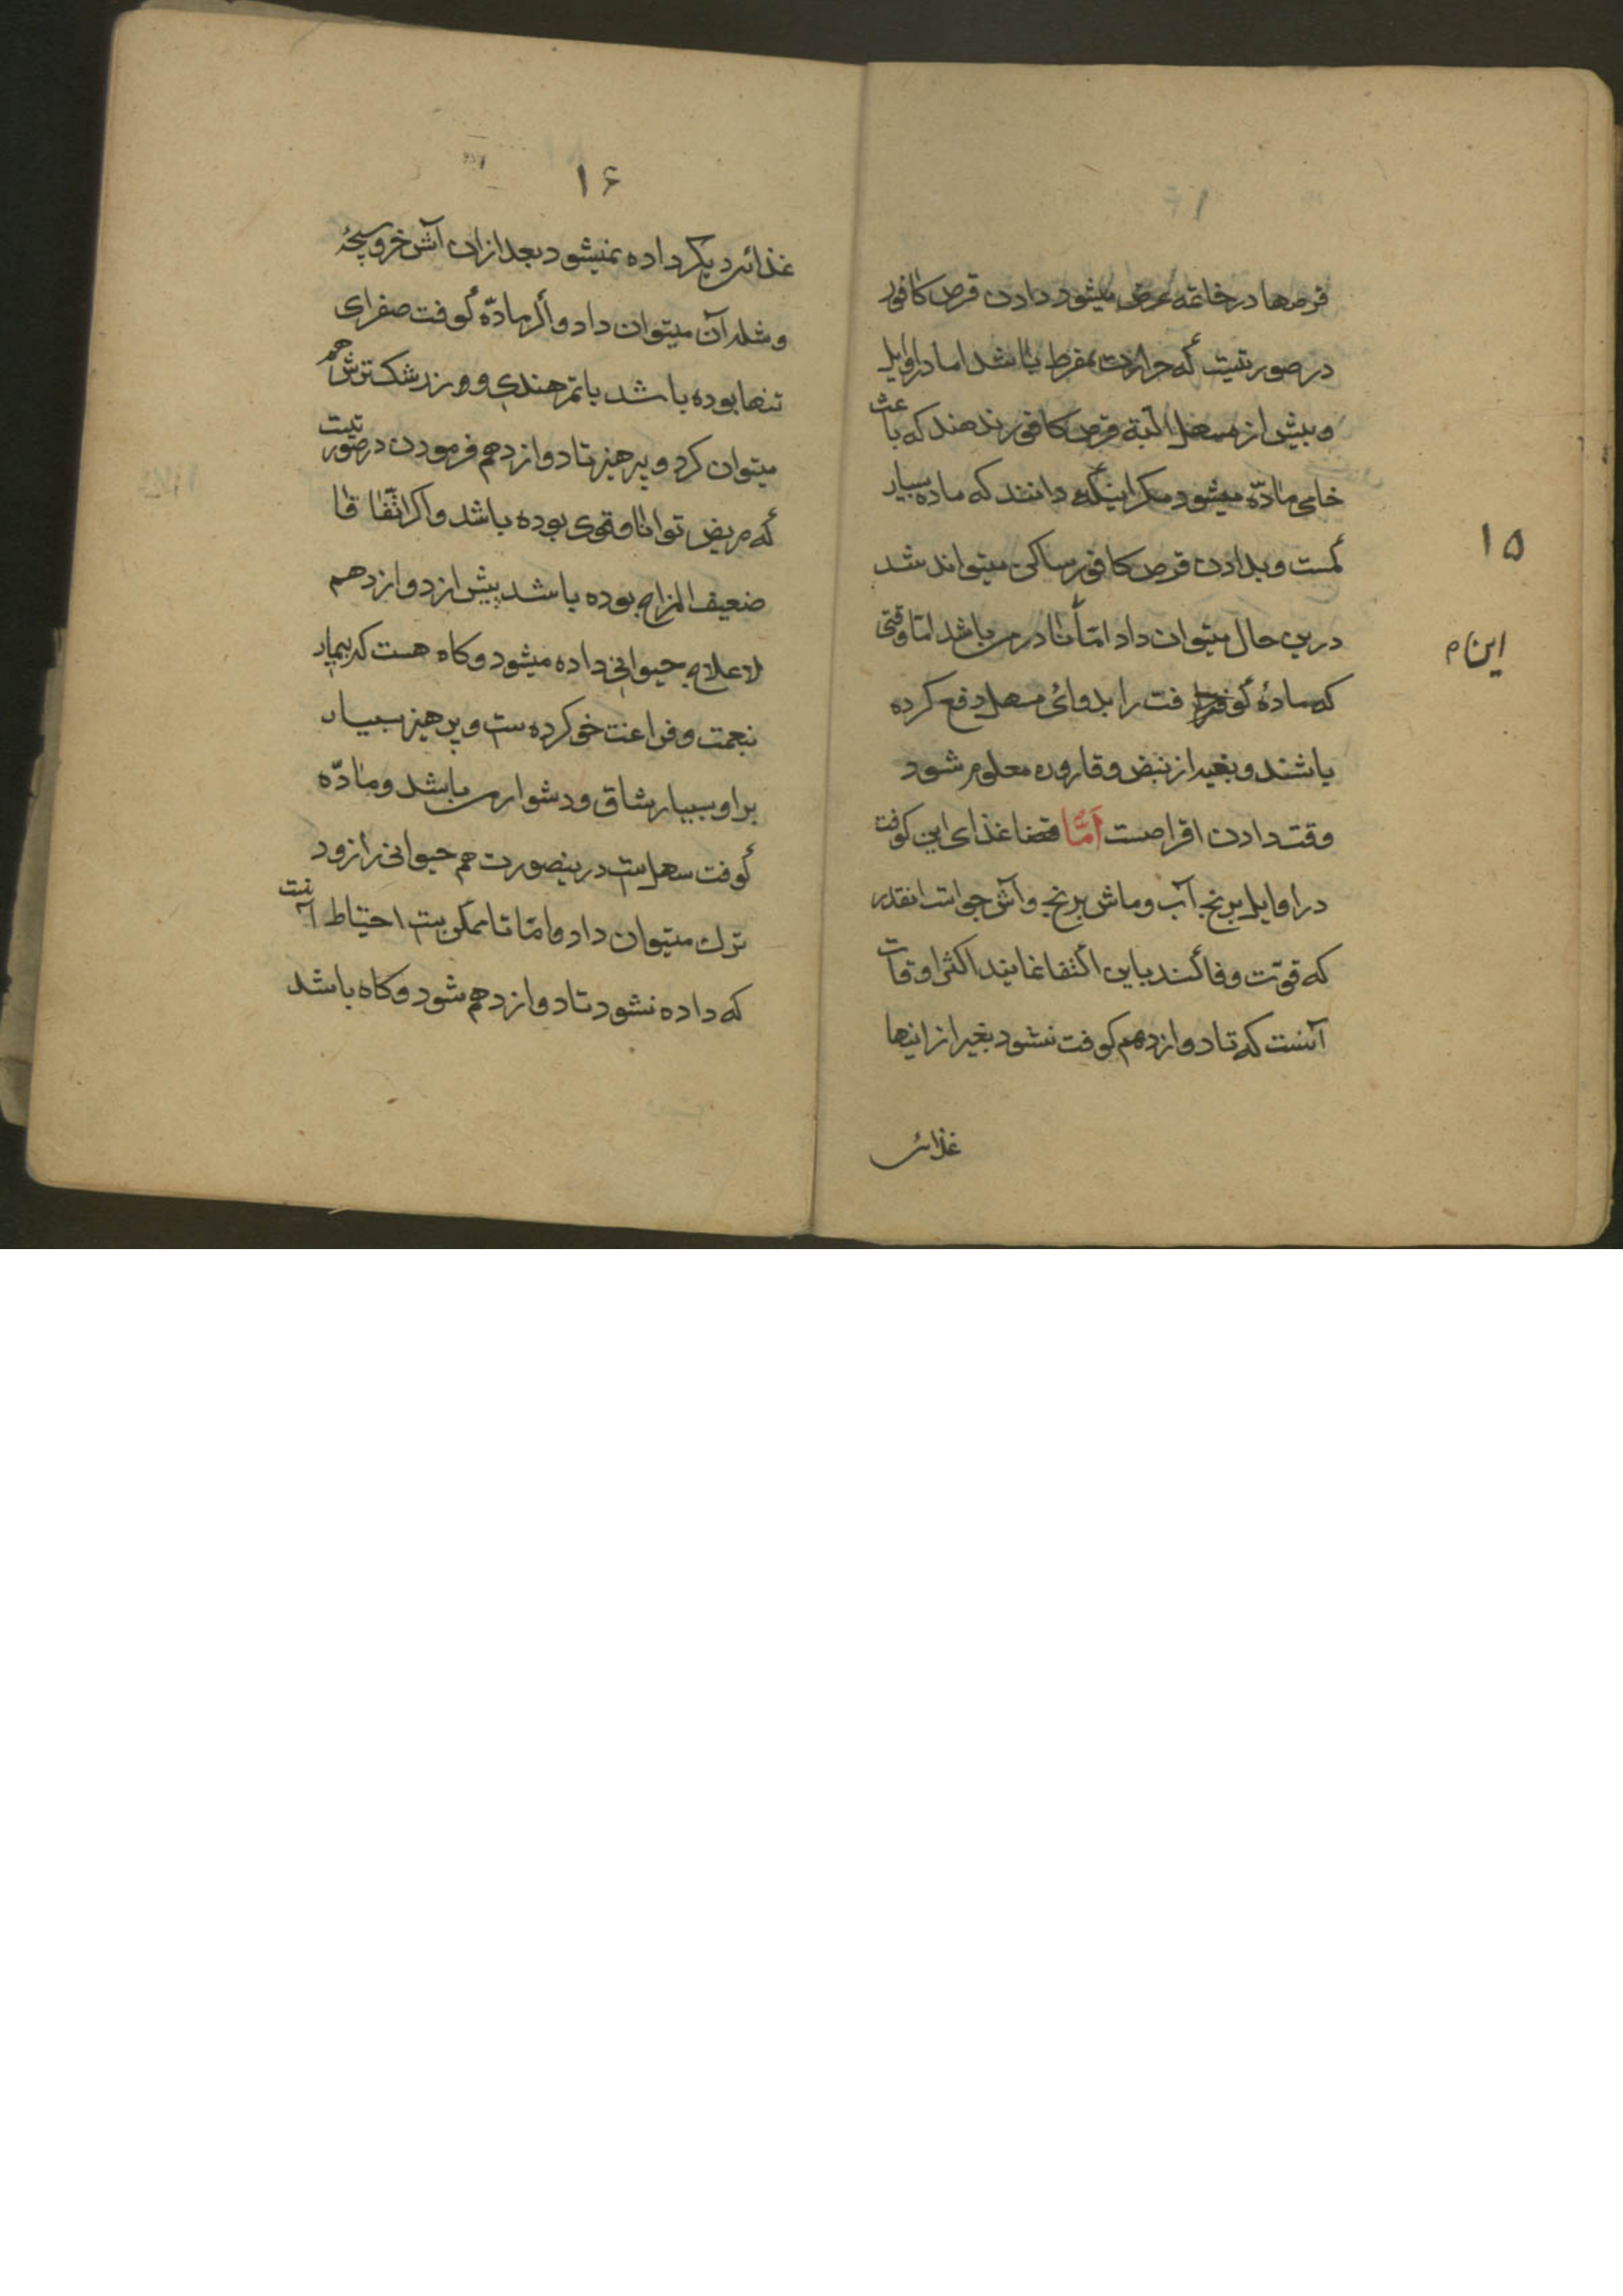 قرصها در خاتمه عرض میشود دادن قرص کافور
در صورتیست که حرارت مفرط باشد اما در اوایل
و پیش از مسهل البته قرص کافور ندهند که باعث
خامی مادّه میشود مکر اینکه دانند که ماده بسیار
کمست و بدادن قرص کافور ساکن میتواند شد
۱۵
درین حال میتوان داد امّا نادر می باشد امّا وقتی
این م
که مادۀ کوفت را بدوائی مسهل دفع کرده
باشند و بغیر از نبض و قاروره معلوم شود
وقت دادن اقراصست اَمَّا غذای این کوفت
در اوایل برنج آب و ماش برنج و آش جو است انقدر
که قوّت وفا کند باین اکتفا نمایند اکثر اوقات
آنست که تا دوازدهم کوفت نشود بغیر از اینها
غذائی
۱۶
غذائی دیکر داده نمیشود بعد از ان آش خروسبچۀ
و شله آن میتوان داد و اکر مادّۀ کوفت صفرای
تنها بوده باشد با تمر هندی و زرشک ترش هم
میتوان کرد و پرهیز تا دوازدهم فرمودن در صورتیست
که مریض توانا و قوی بوده باشد و اکر اتّفاقا
ضعیف المزاج بوده باشد پیش از دوازدهم
لاعلاج حیوانی داده میشود و کاه هست که بیمار
بنعمت و فراغت خو کرده ست و پرهیز بسیار
بر او بسیار شاق و دشوار می باشد و مادّه
کوفت سهلست درینصورت هم حیوانی را زود
ترک میتوان داد و امّا تا ممکن ست احتیاط آنست
که داده نشود تا دوازدهم شود و کاه باشد